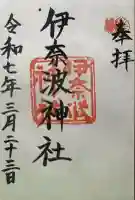 奉拝
伊奈波神社
令和七年三月二十三日